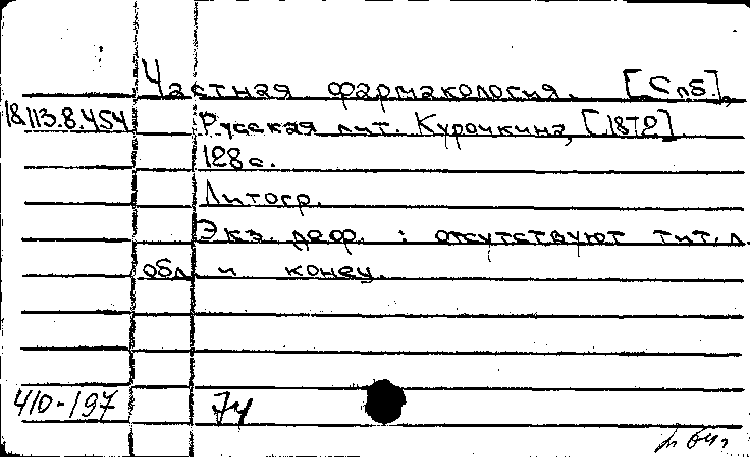 Частная фармакология. [Спб.],
18.113.8.454 Русская лит. Курочкина, [1872]
128 с.
Литогр.
Экз. деф.: отсутствуют тит. л.
обл и конец.
410-197 74